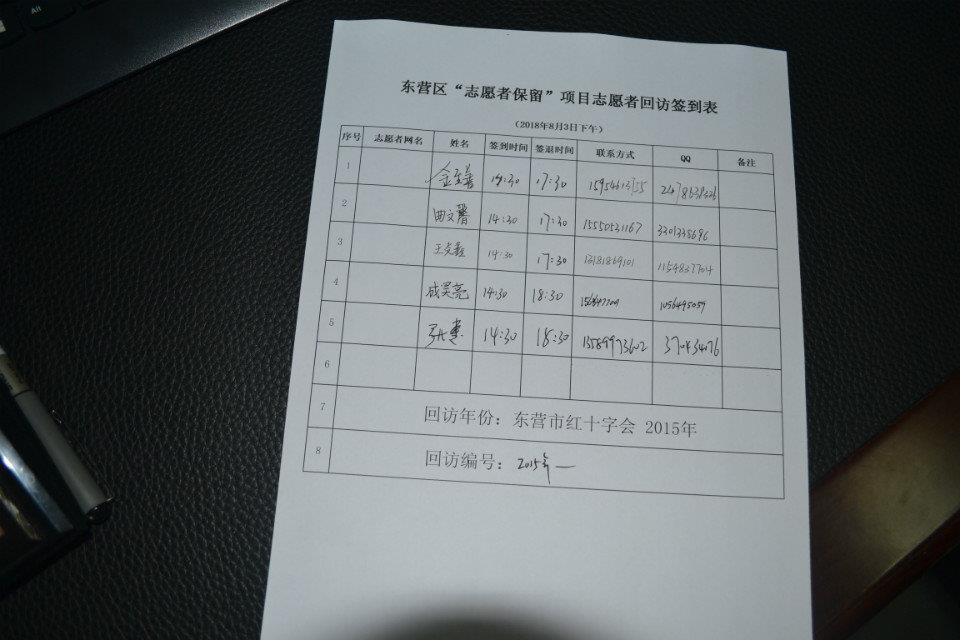 All
东营区“志愿者保留”项目志愿者回访签到表
（2018年8月3日下午）
序号 志愿者网名 姓名 签到时间 签退时间 联系方式 QQ 备注
1 金至善 14:30 17:30
2 田文馨 14:30 17:30 15550531167 3301338696
3 14:30 17:30 13181869101 1154837704
4 成昊亮 14:30 18:30 1056495059
5 14:30 18:30 13589973602 370434076
6
7 回访年份：东营市红十字会 2015年
8 回访编号：2015年一